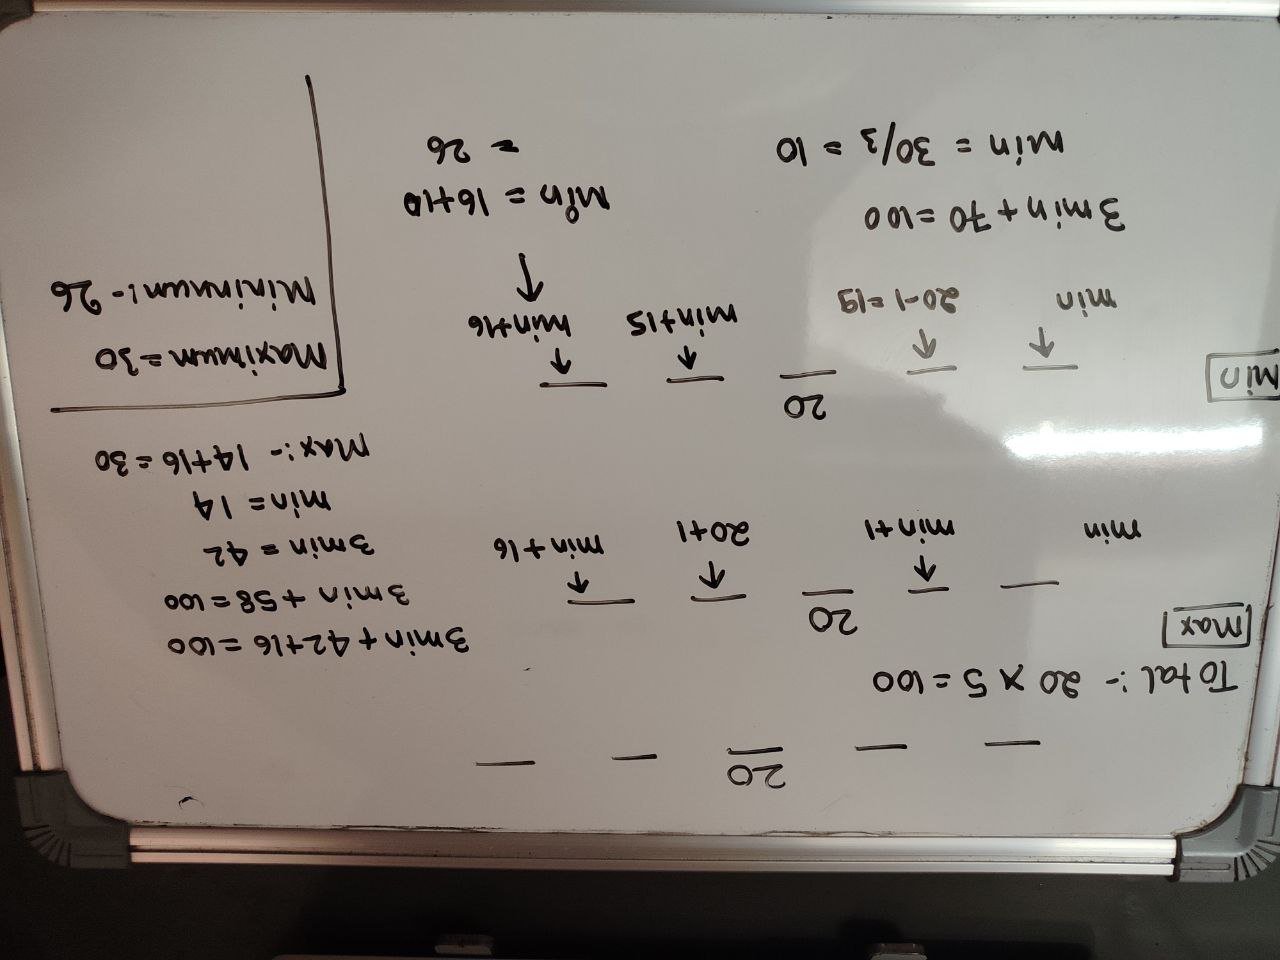 20
Total :- 20 x 5 = 100
Max
20
min min+1 20+1 min+16
3min + 42+16 = 100
3min + 58 = 100
3min = 42
min = 14
Max :- 14+16 = 30
Min
20
min 20-1=19 min+15 min+16
3min + 70 = 100
min = 30/3 = 10
Min = 16+10
= 26
Maximum = 30
Mininnum :- 26